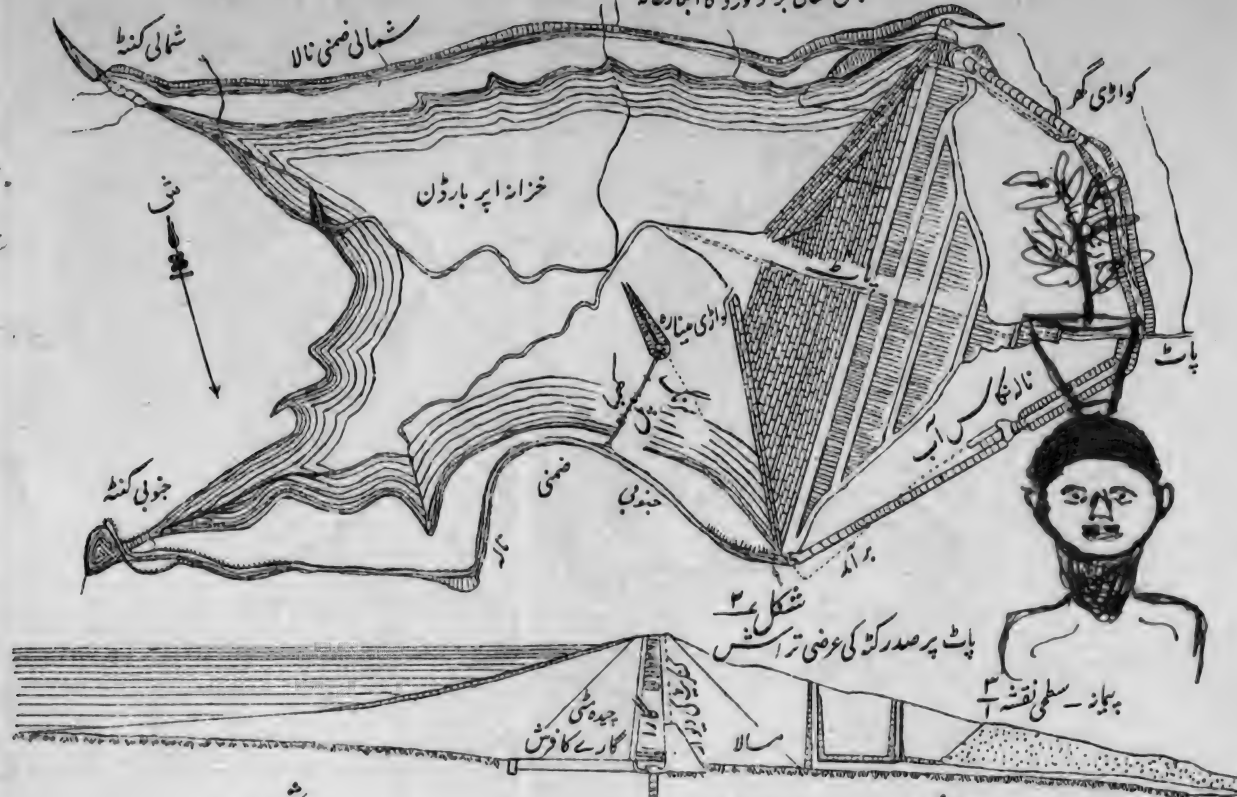 شمالی کنٹہ
شمالی ضمنی نالا
کواڑی گھر
خزانہ اپر بارڈن
پاٹ
کواڑی مینارہ
پاٹ
نالہ نکاس آب
جنوبی کنٹہ
ضمنی
جنوبی
نالہ
برآمد
شکل ۲
پاٹ پر صدر کٹہ کی عرضی تراش
پیمانہ - سطحی نقشہ ۳/۱
چیدہ مٹی
گارے کا فرش
گارا
مسالا